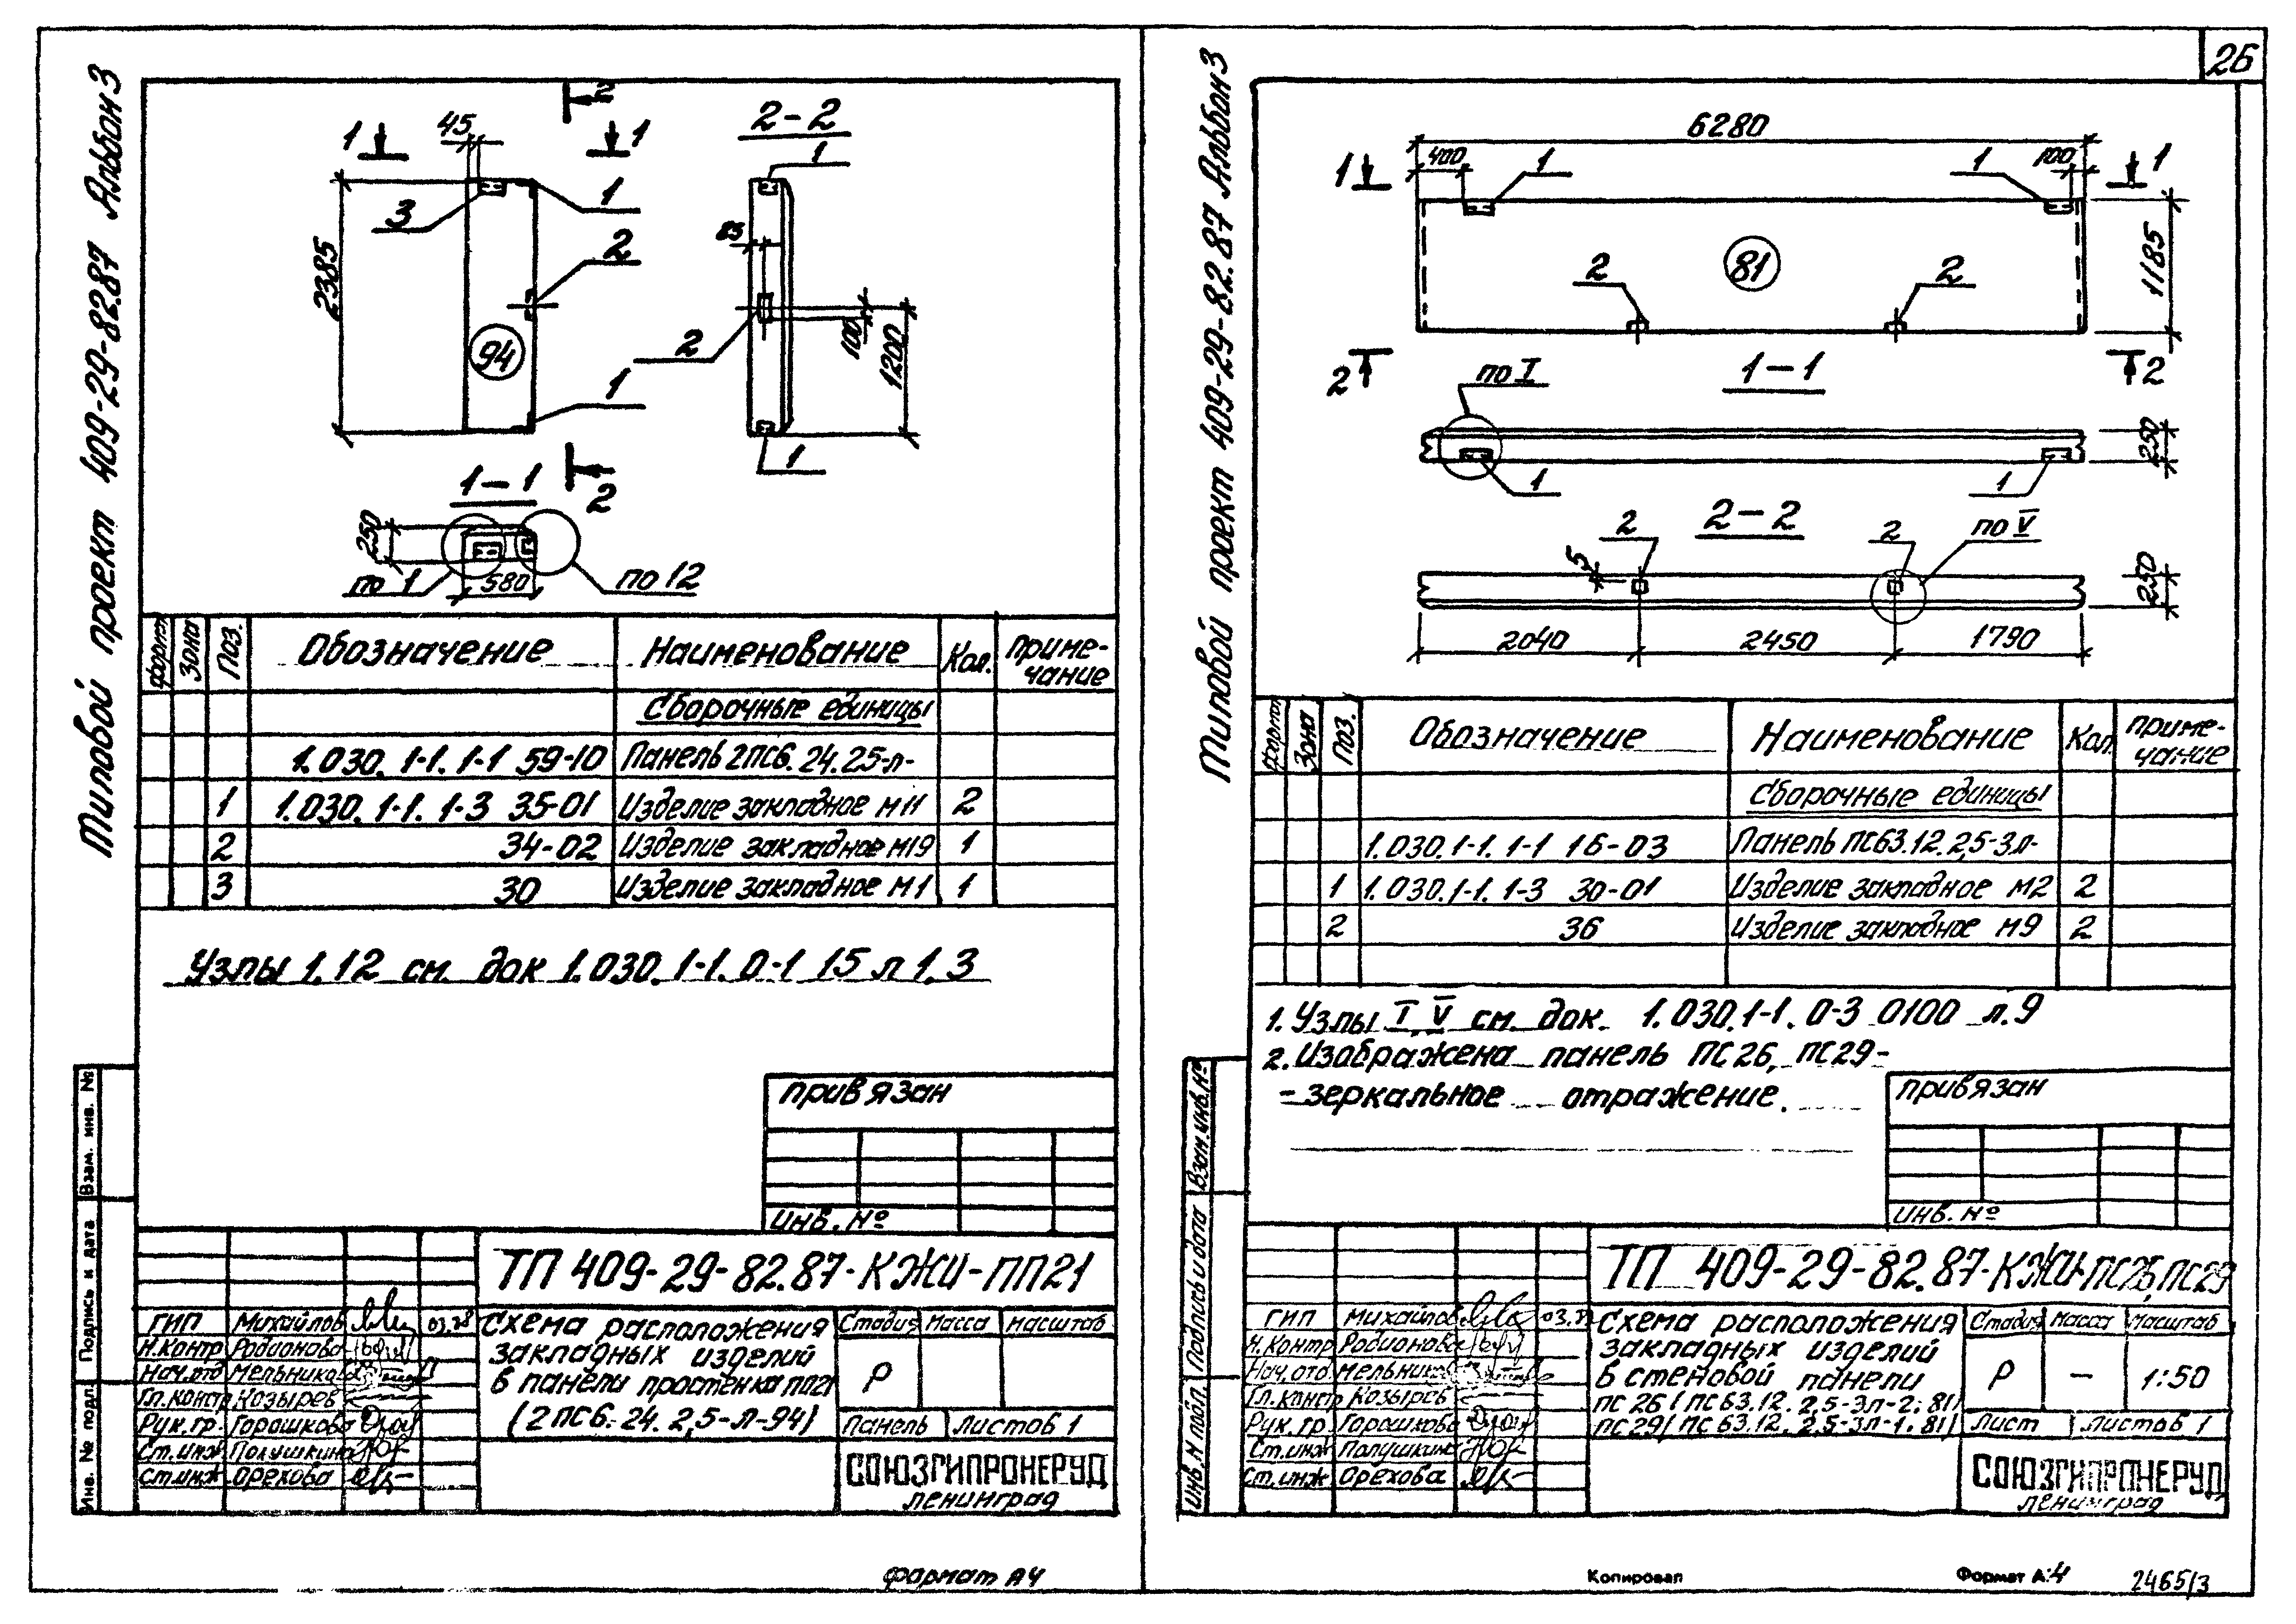 26
Типовой проект 409-29-82.87 Альбом 3
2
1 1
45
2-2
1
1
3
2
85
2385
94
2
100
1200
1
1
1-1
2
250
по 1
580
по 12
формат Зона Поз. Обозначение Наименование Кол. Приме-
чание
Сборочные единицы
1.030.1-1.1-1 59-10 Панель 2ПС6.24.25-л-
1 1.030.1-1.1-3 35-01 Изделие закладное М11 2
2 34-02 Изделие закладное М19 1
3 30 Изделие закладное М1 1
Узлы 1.12 см. док 1.030.1-1.0-1 15 л 1.3
Привязан
Инв. №
Взам. инв. №
Подпись и дата
Инв. № подл.
ТП 409-29-82.87-КЖИ-ПП21
ГИП Михайлов 03.88
Н.контр Родионова
Нач.отд Мельников
Гл.констр Козырев
Рук.гр. Горошкова
Ст.инж Полушкина
Ст.инж Орехова
Схема расположения
закладных изделий
в панели простенка ПП21
(2ПС6.24.2,5-Л-94)
Стадия Масса Масштаб
Р
Панель Листов 1
СОЮЗГИПРОНЕРУД
Ленинград
Формат А4
Типовой проект 409-29-82.87 Альбом 3
6280
400 100
1 1 1 1
1185
2 81 2
2 2
по I
1-1
250
1 1
2-2
2 2 по V
5
250
2040 2450 1790
формат Зона Поз. Обозначение Наименование Кол. Приме-
чание
Сборочные единицы
1.030.1-1.1-1 16-03 Панель ПС63.12.2,5-3л-
1 1.030.1-1.1-3 30-01 Изделие закладное М2 2
2 36 Изделие закладное М9 2
1. Узлы I, V см. док. 1.030.1-1.0-3 0100 л.9
2. Изображена панель ПС26, ПС29-
- зеркальное отражение.
Привязан
Инв. №
Взам.инв.№
Подпись и дата
Инв.№ подл.
ТП 409-29-82.87-КЖИ-ПС26,ПС29
ГИП Михайлов
Н.контр Родионова
Нач.отд Мельников
Гл.констр Козырев
Рук.гр Горошкова
Ст.инж Полушкина
Ст.инж Орехова
Схема расположения
закладных изделий
в стеновой панели
ПС 26 (ПС63.12.2,5-3л-2.81)
ПС29 (ПС63.12.2,5-3л-1.81)
Стадия Масса Масштаб
Р - 1:50
Лист Листов 1
СОЮЗГИПРОНЕРУД
Ленинград
Копировал
Формат А4
2465/3